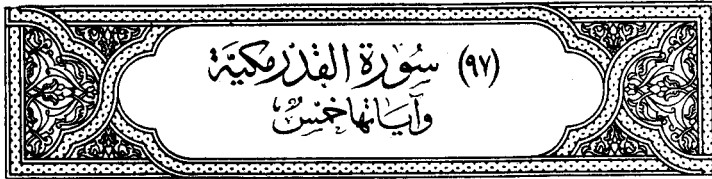 (٩٧) سُورَة القَدْرِ مَكِيَّة
وَآيَاتُهَا خَمْسٌ